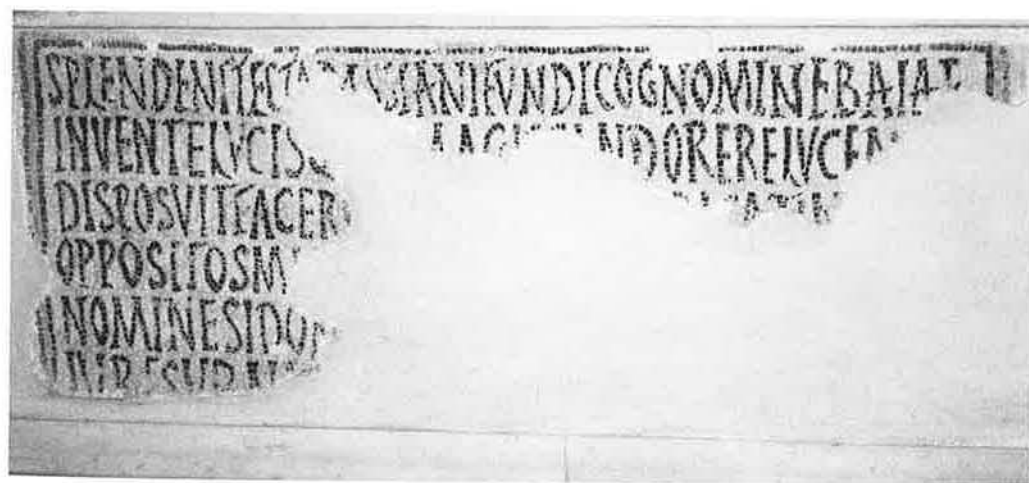 SPLENDENTTECTA SSIANIFVNDICOGNOMINEBAIAE
INVENTELVCIS NDORERELVCEN
DISPOSVITFACER
OPPOSITOSM
NOMINESIDO
IVRESVB